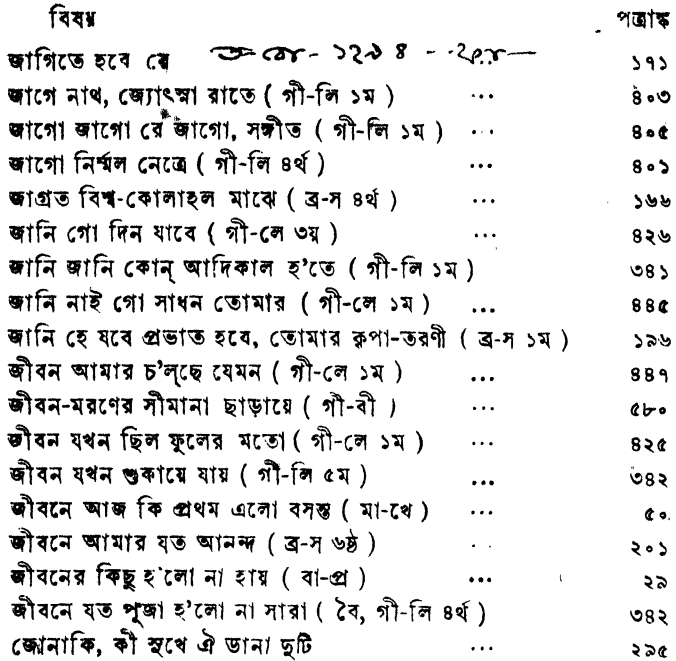 বিষয় পত্রাঙ্ক
জাগিতে হবে রে ১২৯৪ ১৭১
জাগে নাথ, জ্যোৎস্না রাতে ( গী-লি ১ম ) ... ৪০৩
জাগো জাগো রে জাগো, সঙ্গীত ( গী-লি ১ম ) ... ৪০৫
জাগো নির্ম্মল নেত্রে ( গী-লি ৪র্থ ) ... ৪০১
জাগ্রত বিশ্ব-কোলাহল মাঝে ( ব্র-স ৪র্থ ) ... ১৬৬
জানি গো দিন যাবে ( গী-লে ৩য় ) ... ৪২৬
জানি জানি কোন্ আদিকাল হ'তে ( গী-লি ১ম ) ৩৪১
জানি নাই গো সাধন তোমার ( গী-লে ১ম ) ... ৪৪৫
জানি হে যবে প্রভাত হবে, তোমার কৃপা-তরণী ( ব্র-স ১ম ) ১৯৬
জীবন আমার চ'ল্‌ছে যেমন ( গী-লে ১ম ) ... ৪৪৭
জীবন-মরণের সীমানা ছাড়ায়ে ( গী-বী ) ... ৫৮০
জীবন যখন ছিল ফুলের মতো ( গী-লে ১ম ) ... ৪২৫
জীবন যখন শুকায়ে যায় ( গী-লি ৫ম ) ... ৩৪২
জীবনে আজ কি প্রথম এলো বসন্ত ( মা-খে ) ... ৫০
জীবনে আমার যত আনন্দ ( ব্র-স ৬ষ্ঠ ) ... ২০১
জীবনের কিছু হ'লো না হায় ( বা-প্র ) ... ২৯
জীবনে যত পূজা হ'লো না সারা ( বৈ, গী-লি ৪র্থ ) ৩৪২
জোনাকি, কী সুখে ঐ ডানা দুটি ... ২৯৫